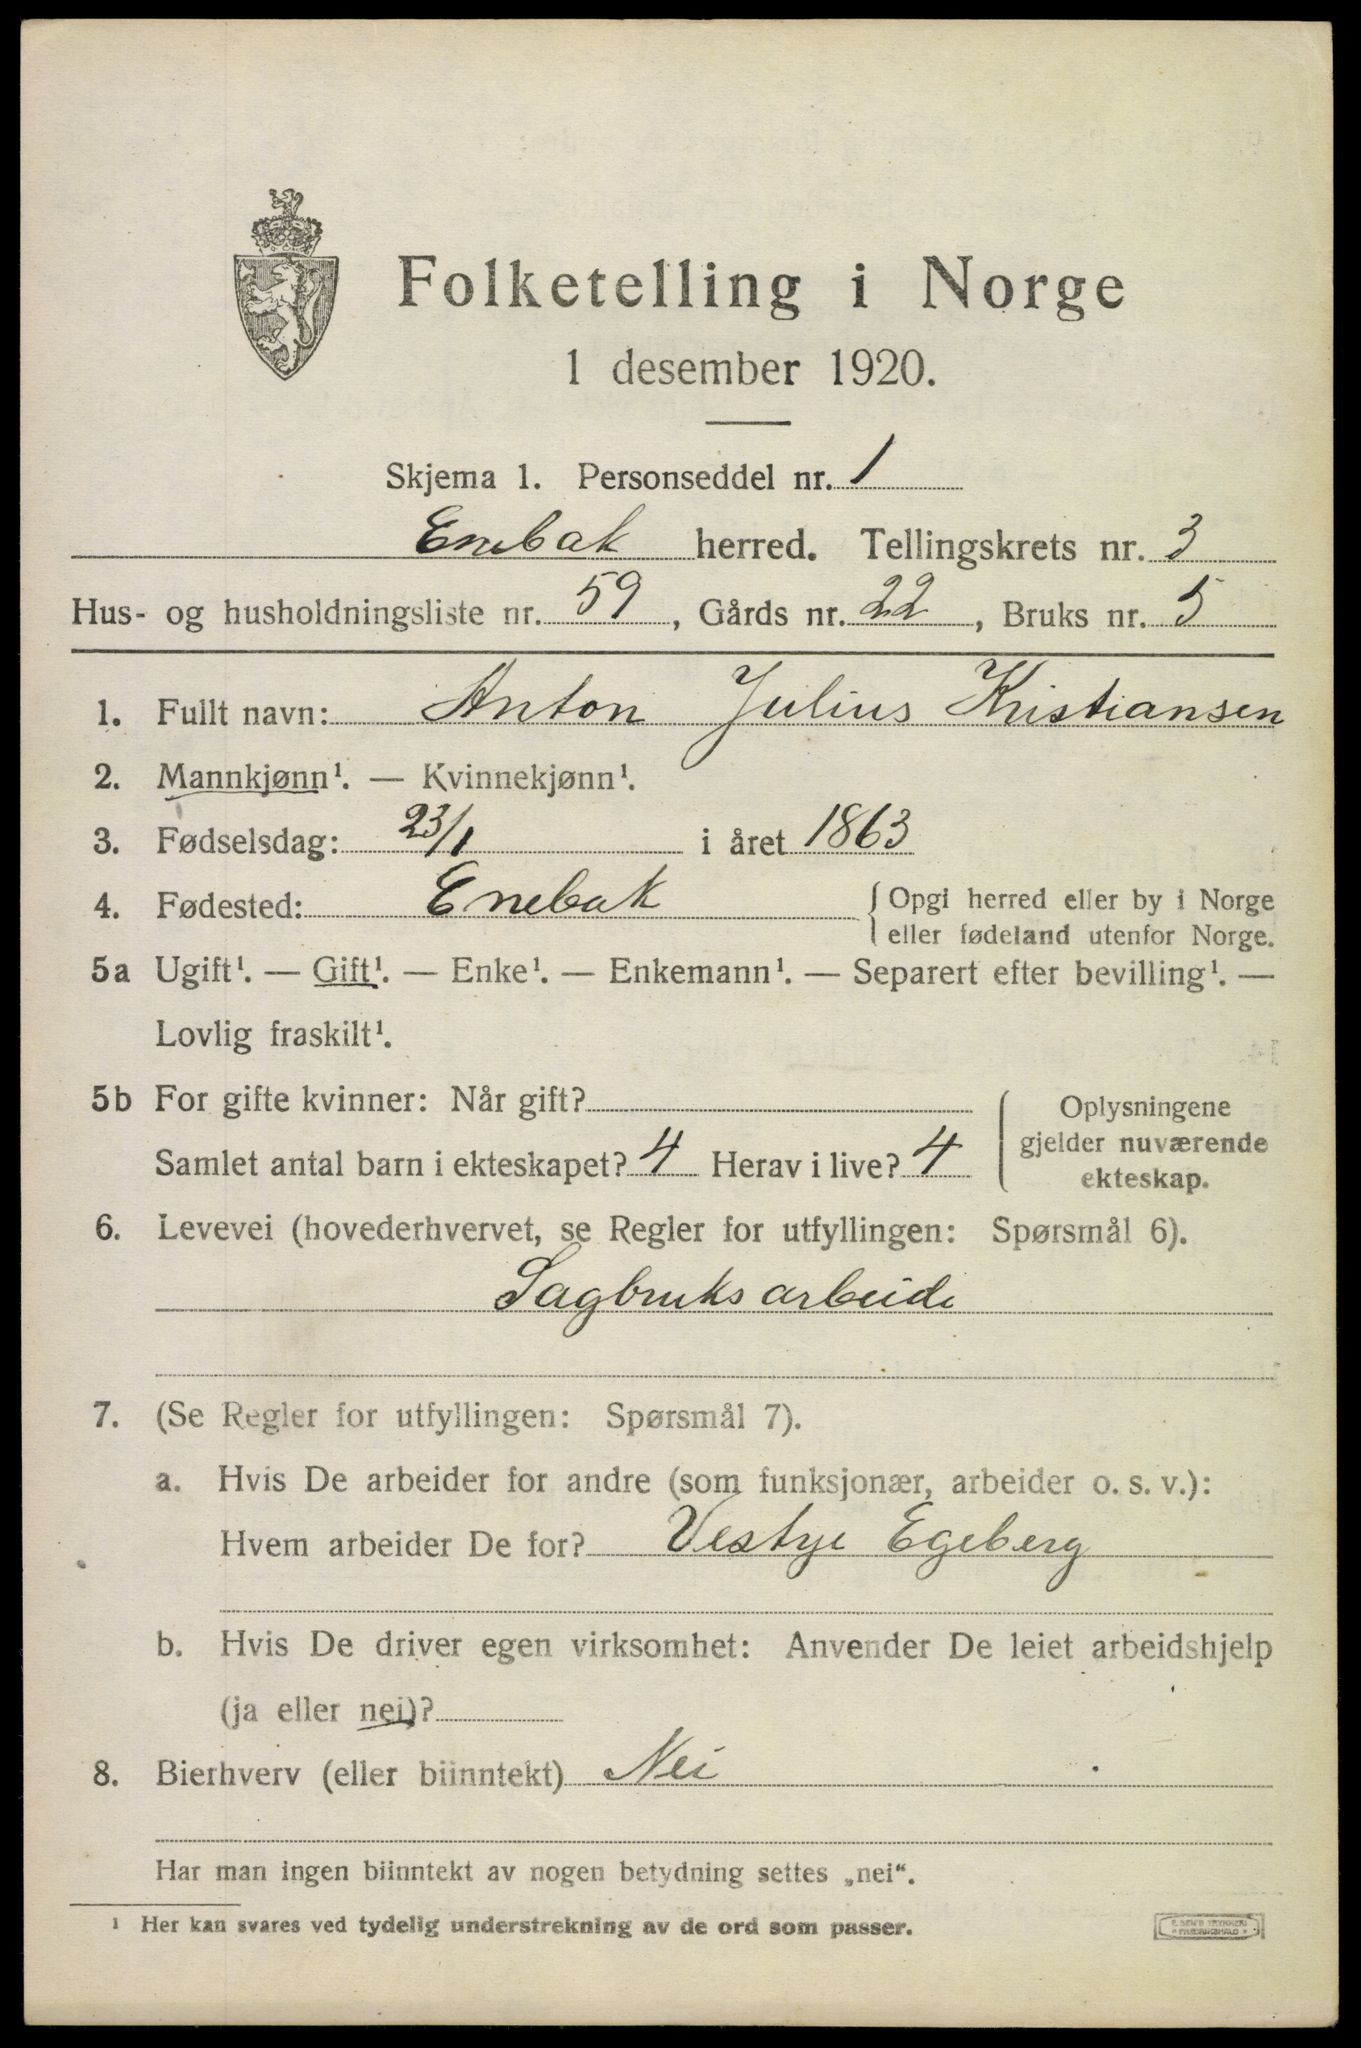 Folketelling i Norge
1 desember 1920.
Skjema 1. Personseddel nr. 1
Enebak herred. Tellingskrets nr. 3
Hus- og husholdningsliste nr. 59, Gårds nr. 22, Bruks nr. 5
1. Fullt navn: Anton Julius Kristiansen
2. Mannkjønn¹. — Kvinnekjønn¹.
3. Fødselsdag: 23/1 i året 1863
4. Fødested: Enebak { Opgi herred eller by i Norge
eller fødeland utenfor Norge.
5a Ugift¹. — Gift¹. — Enke¹. — Enkemann¹. — Separert efter bevilling¹. —
Lovlig fraskilt¹.
5b For gifte kvinner: Når gift?
Samlet antal barn i ekteskapet? 4 Herav i live? 4
Oplysningene
gjelder nuværende
ekteskap.
6. Levevei (hovederhvervet, se Regler for utfyllingen: Spørsmål 6).
Sagbruksarbeide
7. (Se Regler for utfyllingen: Spørsmål 7).
a. Hvis De arbeider for andre (som funksjonær, arbeider o. s. v.):
Hvem arbeider De for? Vestye Egeberg
b. Hvis De driver egen virksomhet: Anvender De leiet arbeidshjelp
(ja eller nei)?
8. Bierhverv (eller biinntekt) Nei
Har man ingen biinntekt av nogen betydning settes „nei“.
¹ Her kan svares ved tydelig understrekning av de ord som passer.